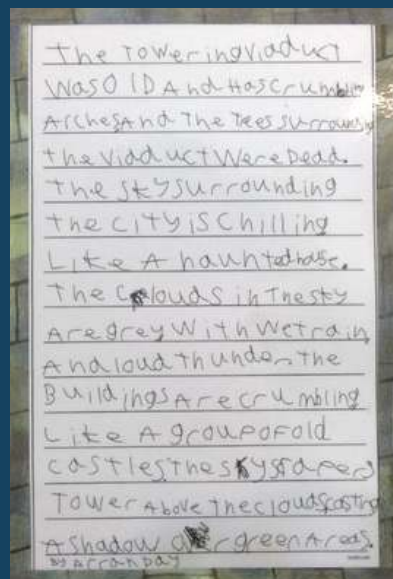 The Towering viaduct
Was Old And Has Crumbling
Arches And The Tees surrounding
the viaduct Were Dead.
The sky surrounding
the city is Chilling
Like A haunted house.
The Clouds in The sky
Are grey With Wet rain
And loud thunder the
Buildings Are crumbling
Like A group of old
castles the skyscrapers
Tower Above the clouds casting
A shadow over green Areas.
By Arran Day